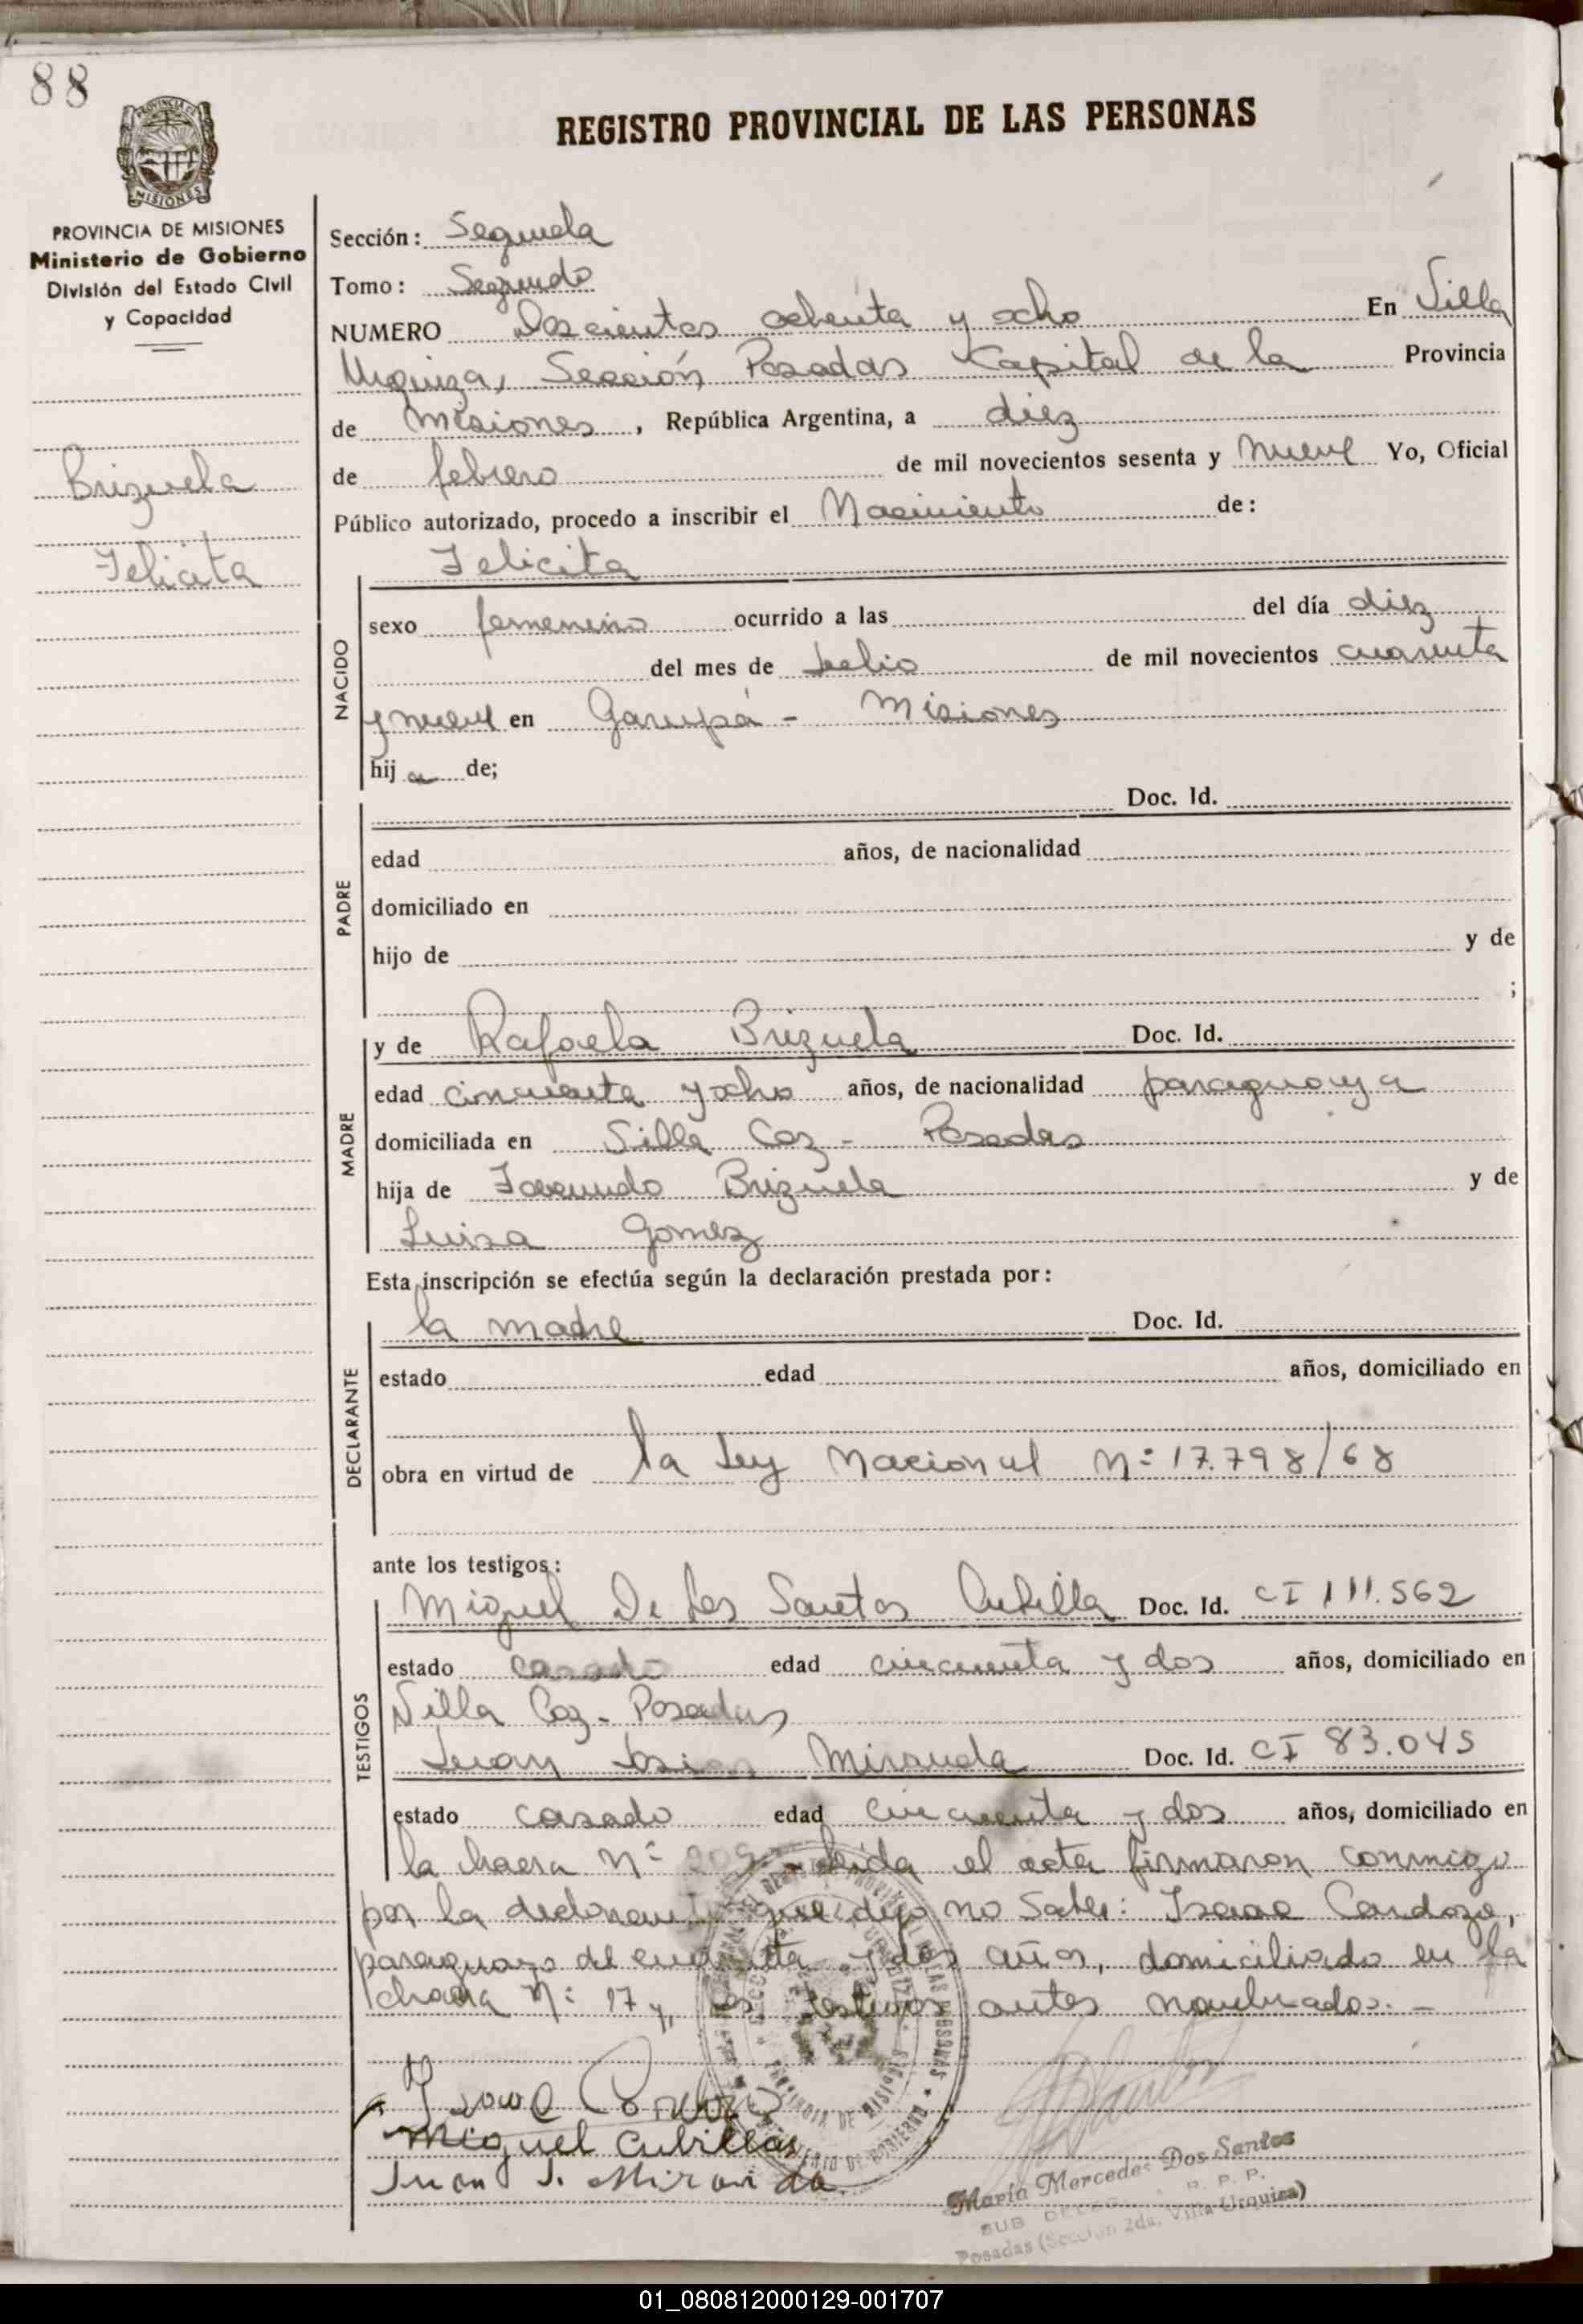 88
PROVINCIA DE
MISIONES
REGISTRO PROVINCIAL DE LAS PERSONAS
PROVINCIA DE MISIONES
Ministerio de Gobierno
División del Estado Civil
y Capacidad
Brizuela
Felicita
Sección: Segunda
Tomo: Segundo
NUMERO Doscientos ochenta y ocho En Villa
Urquiza, Sección Posadas Capital de la Provincia
de Misiones, República Argentina, a diez
de febrero de mil novecientos sesenta y nueve Yo, Oficial
Público autorizado, procedo a inscribir el Nacimiento de:
Felicita
NACIDO
sexo femenino ocurrido a las del día diez
del mes de Julio de mil novecientos cuarenta
y nueve en Garupá - Misiones
hija de;
PADRE
Doc. Id.
edad años, de nacionalidad
domiciliado en
hijo de y de
;
MADRE
y de Rafaela Brizuela Doc. Id.
edad cincuenta y ocho años, de nacionalidad paraguaya
domiciliada en Villa Coz - Posadas
hija de Facundo Brizuela y de
Luisa Gomez
Esta inscripción se efectúa según la declaración prestada por:
DECLARANTE
la madre Doc. Id.
estado edad años, domiciliado en
obra en virtud de la Ley Nacional Nº 17.798/68
ante los testigos:
TESTIGOS
Miguel De Los Santos Cubilla Doc. Id. CI 111.562
estado casado edad cincuenta y dos años, domiciliado en
Villa Coz - Posadas
Juan Miranda Doc. Id. CI 83.045
estado casado edad cincuenta y dos años, domiciliado en
la chacra Nº 209 - Leida el acta firmaron conmigo
por la declarante que dijo no saber: Isaac Cardozo,
paraguayo de y dos años, domiciliado en la
chacra Nº 17 y, los testigos antes nombrados. -
Cardozo
Miguel Cubillas
Juan J. Miranda
María Mercedes Dos Santos
SUB DELEG. R. P. P.
Posadas (Sección 2da. Villa Urquiza)
01_080812000129-001707